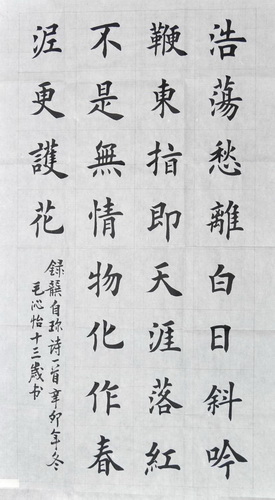 浩蕩愁離白日斜吟
鞭東指即天涯落紅
不是無情物化作春
泥更護花
録龔自珍诗一首辛卯年冬
毛沁怡十三歲书